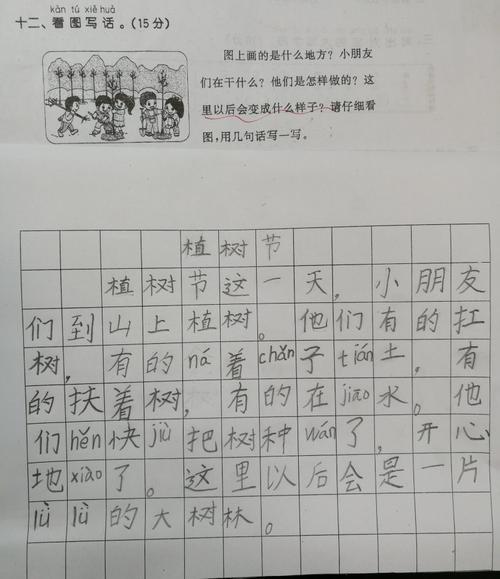 kàn tú xiě huà
十二、看图写话。(15分)
图上画的是什么地方?小朋友
们在干什么?他们是怎样做的?这
里以后会变成什么样子?请仔细看
图,用几句话写一写。
植树节
植树节这一天，小朋友
们到山上植树。他们有的扛
树，有的ná着chǎn子tián土，有
的扶着树，有的在jiao水。他
们hěn快jiù把树种wán了，开心
地xiào了。这里以后会是一片
lǜ lǜ的大树林。